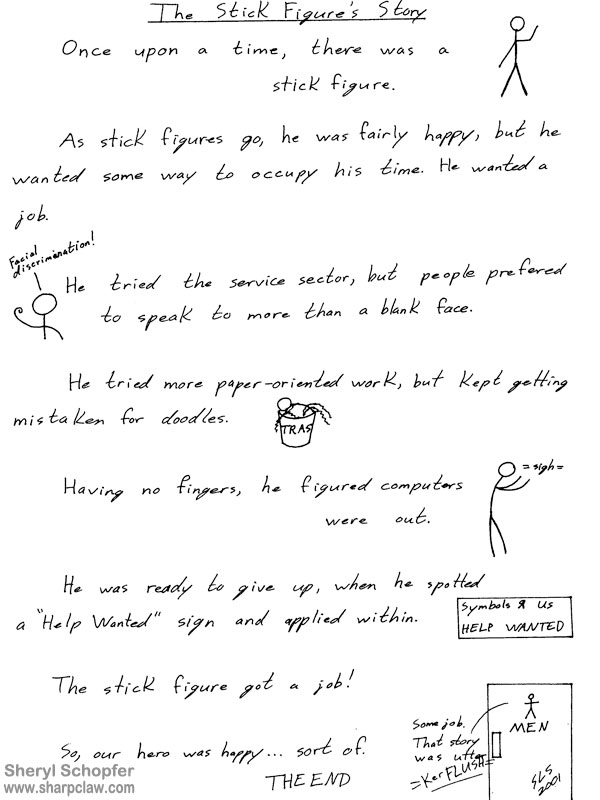 The Stick Figure's Story
Once upon a time, there was a
stick figure.
As stick figures go, he was fairly happy, but he
wanted some way to occupy his time. He wanted a
job.
Facial
discrimination!
He tried the service sector, but people prefered
to speak to more than a blank face.
He tried more paper-oriented work, but kept getting
mistaken for doodles.
TRAS
Having no fingers, he figured computers
were out.
=sigh=
He was ready to give up, when he spotted
a "Help Wanted" sign and applied within.
Symbols R Us
HELP WANTED
The stick figure got a job!
MEN
Some job.
That story
was utter
=KerFLUSH=
So, our hero was happy... sort of.
THE END
SLS
2001
Sheryl Schopfer
www.sharpclaw.com